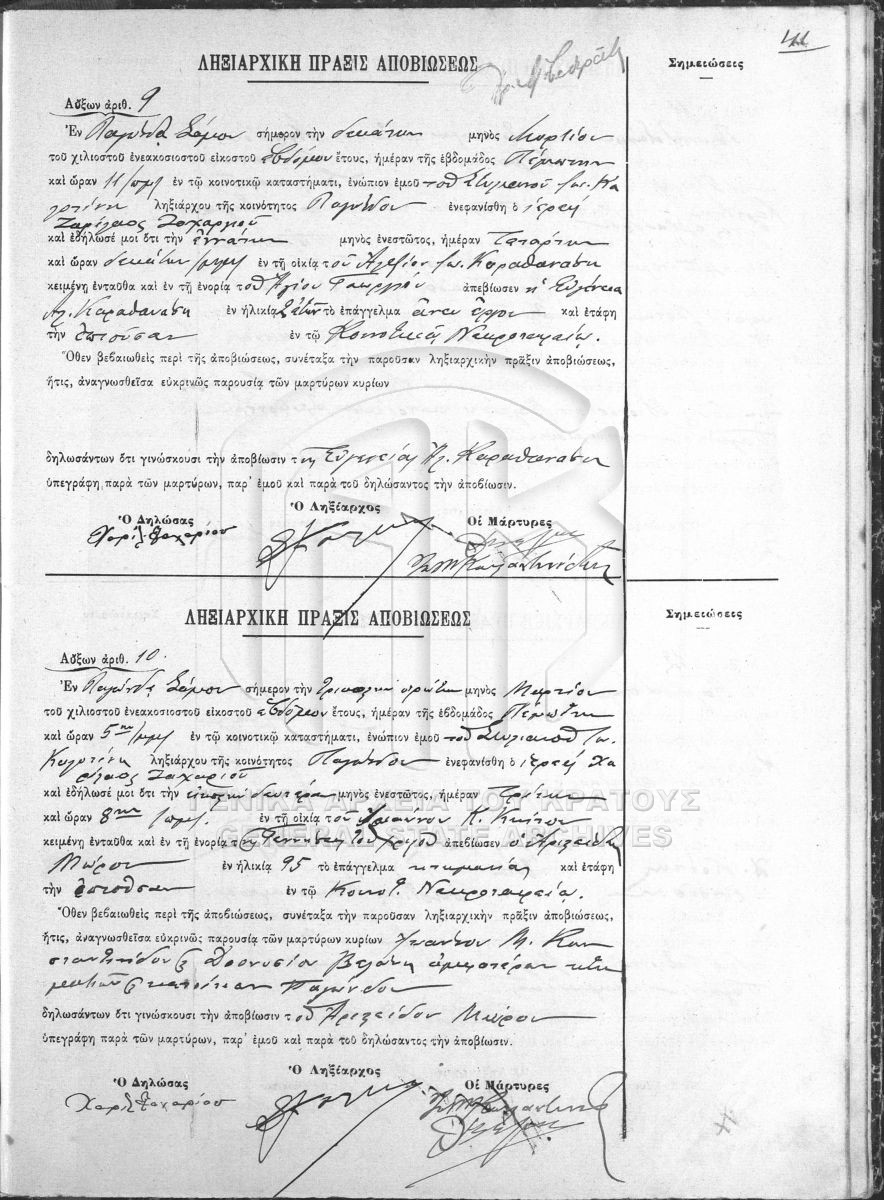 ΛΗΞΙΑΡΧΙΚΗ ΠΡΑΞΙΣ ΑΠΟΒΙΩΣΕΩΣ
Σημειώσεις
Αὔξων ἀριθ. 9
Ἐν Παγώνδα Σάμου σήμερον τὴν δεκάτην μηνὸς Μαρτίου
τοῦ χιλιοστοῦ ἐνεακοσιοστοῦ εἰκοστοῦ ἑβδόμου ἔτους, ἡμέραν τῆς ἑβδομάδος Πέμπτην
καὶ ὥραν 11 π.μ. ἐν τῷ κοινοτικῷ καταστήματι, ἐνώπιον ἐμοῦ τοῦ Στυλιανοῦ Ἰω.
ληξιάρχου τῆς κοινότητος Παγώνδου ἐνεφανίσθη ὁ ἱερεὺς
Χαρίλαος Ζαχαρίου
καὶ ἐδήλωσέ μοι ὅτι τὴν ἐννάτην μηνὸς ἐνεστῶτος, ἡμέραν Τετάρτην
καὶ ὥραν δεκάτην ἐν τῇ οἰκίᾳ τοῦ Ἀλεξίου Ἰω. Καραθανάση
κειμένῃ ἐνταῦθα καὶ ἐν τῇ ἐνορίᾳ τοῦ Ἁγίου Γεωργίου ἀπεβίωσεν ἡ Εὐγενία
Ἀλ. Καραθανάση ἐν ἡλικίᾳ ἐτῶν τὸ ἐπάγγελμα ἄνευ ἔργου καὶ ἐτάφη
τὴν ἐπιοῦσαν ἐν τῷ Κοινοτικῷ Νεκροταφείῳ.
Ὅθεν βεβαιωθεὶς περὶ τῆς ἀποβιώσεως, συνέταξα τὴν παροῦσαν ληξιαρχικὴν πρᾶξιν ἀποβιώσεως,
ἥτις, ἀναγνωσθεῖσα εὐκρινῶς παρουσίᾳ τῶν μαρτύρων κυρίων
δηλωσάντων ὅτι γινώσκουσι τὴν ἀποβίωσιν τῆς Εὐγενίας Ἀλ. Καραθανάση
ὑπεγράφη παρὰ τῶν μαρτύρων, παρ' ἐμοῦ καὶ παρὰ τοῦ δηλώσαντος τὴν ἀποβίωσιν.
Ὁ Δηλώσας Ὁ Ληξίαρχος Οἱ Μάρτυρες
Χαρίλ. Ζαχαρίου
ΛΗΞΙΑΡΧΙΚΗ ΠΡΑΞΙΣ ΑΠΟΒΙΩΣΕΩΣ
Σημειώσεις
Αὔξων ἀριθ. 10.
Ἐν Παγώνδα Σάμου σήμερον τὴν τριακοστὴν πρώτην μηνὸς Μαρτίου
τοῦ χιλιοστοῦ ἐνεακοσιοστοῦ εἰκοστοῦ ἑβδόμου ἔτους, ἡμέραν τῆς ἑβδομάδος Πέμπτην
καὶ ὥραν 5ην μ.μ. ἐν τῷ κοινοτικῷ καταστήματι, ἐνώπιον ἐμοῦ τοῦ Στυλιανοῦ Ἰω.
ληξιάρχου τῆς κοινότητος Παγώνδου ἐνεφανίσθη ὁ ἱερεὺς Χα
ρίλαος Ζαχαρίου
καὶ ἐδήλωσέ μοι ὅτι τὴν εἰκοστὴν δευτέραν μηνὸς ἐνεστῶτος, ἡμέραν Τρίτην
καὶ ὥραν 8ην ἐν τῇ οἰκίᾳ τοῦ Ἰωάννου Κ.
κειμένῃ ἐνταῦθα καὶ ἐν τῇ ἐνορίᾳ τῆς Γεννήσεως τοῦ Χριστοῦ ἀπεβίωσεν ὁ Ἀριστείδης
Μώρου ἐν ἡλικίᾳ 95 τὸ ἐπάγγελμα κτηματίας καὶ ἐτάφη
τὴν ἐπιοῦσαν ἐν τῷ Κοινοτ. Νεκροταφείῳ.
Ὅθεν βεβαιωθεὶς περὶ τῆς ἀποβιώσεως, συνέταξα τὴν παροῦσαν ληξιαρχικὴν πρᾶξιν ἀποβιώσεως,
ἥτις, ἀναγνωσθεῖσα εὐκρινῶς παρουσίᾳ τῶν μαρτύρων κυρίων Ἰωάννου Μ. Κων
σταντινίδου & Διονυσίου ἀμφοτέρων κτη
ματιῶν & κατοίκων Παγώνδου
δηλωσάντων ὅτι γινώσκουσι τὴν ἀποβίωσιν τοῦ Ἀριστείδου Μώρου
ὑπεγράφη παρὰ τῶν μαρτύρων, παρ' ἐμοῦ καὶ παρὰ τοῦ δηλώσαντος τὴν ἀποβίωσιν.
Ὁ Δηλώσας Ὁ Ληξίαρχος Οἱ Μάρτυρες
Χαρίλ. Ζαχαρίου
ΓΕΝΙΚΑ ΑΡΧΕΙΑ ΤΟΥ ΚΡΑΤΟΥΣ
GENERAL STATE ARCHIVES